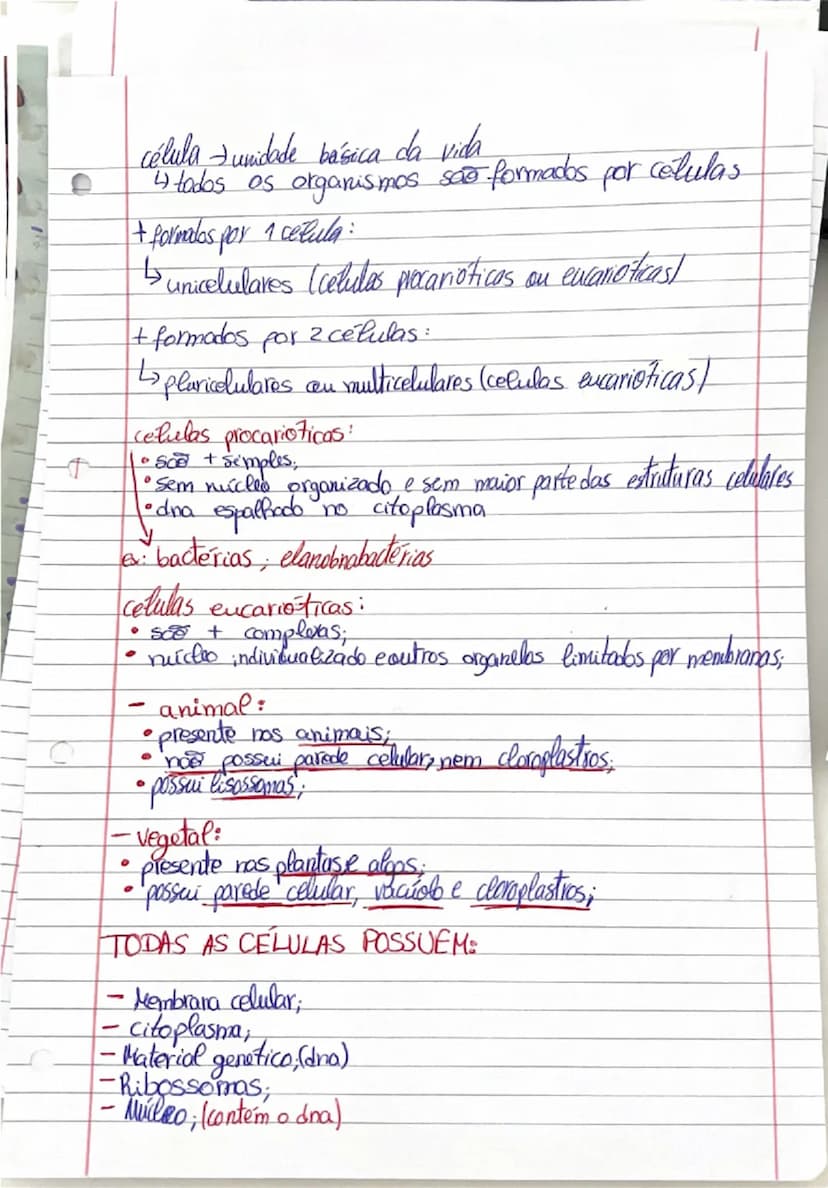 célula → unidade básica da vida
↳ todos os organismos são formados por células
+ formados por 1 celula:
↳ unicelulares (celulas procarióticas ou eucarióticas)
+ formados por 2 células:
↳ pluricelulares ou multicelulares (celulas eucarióticas)
celulas procarioticas:
• são + simples;
• sem núcleo organizado e sem maior parte das estruturas celulares
• dna espalhado no citoplasma
ex: bactérias;
celulas eucarióticas:
• são + complexas;
• núcleo individualizado e outros organelos limitados por membranas;
- animal:
• presente nos animais;
• não possui parede celular, nem cloroplastros;
• possui lisossomas;
- vegetal:
• presente nas plantas e algas;
• possui parede celular, vacúolo e cloroplastros;
TODAS AS CÉLULAS POSSUEM:
- Membrana celular;
- citoplasma;
- Material genetico; (dna)
- Ribossomas;
- Núcleo; (contém o dna)